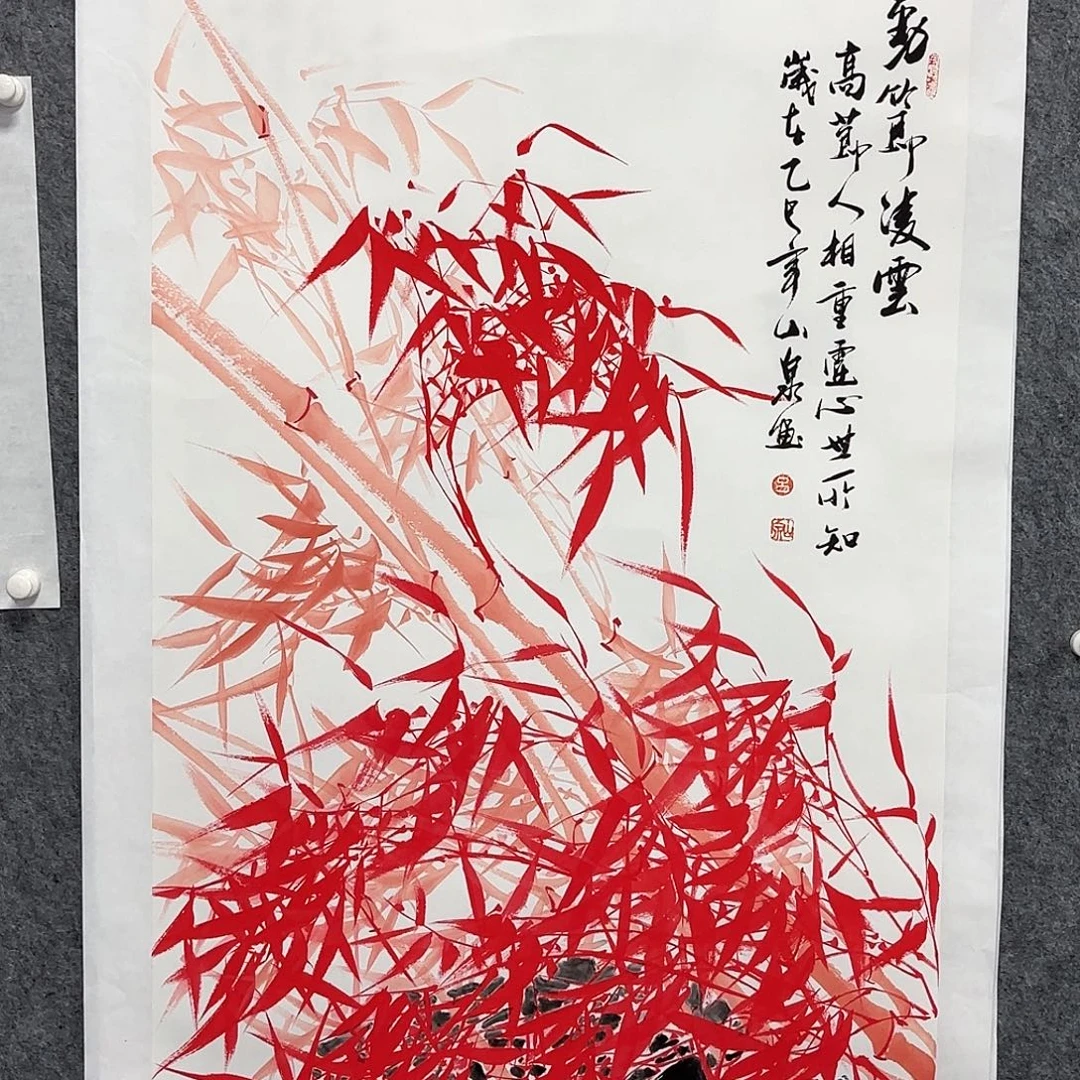 勁節凌雲
高節人相重虛心世所知
歲在乙巳年山泉畫